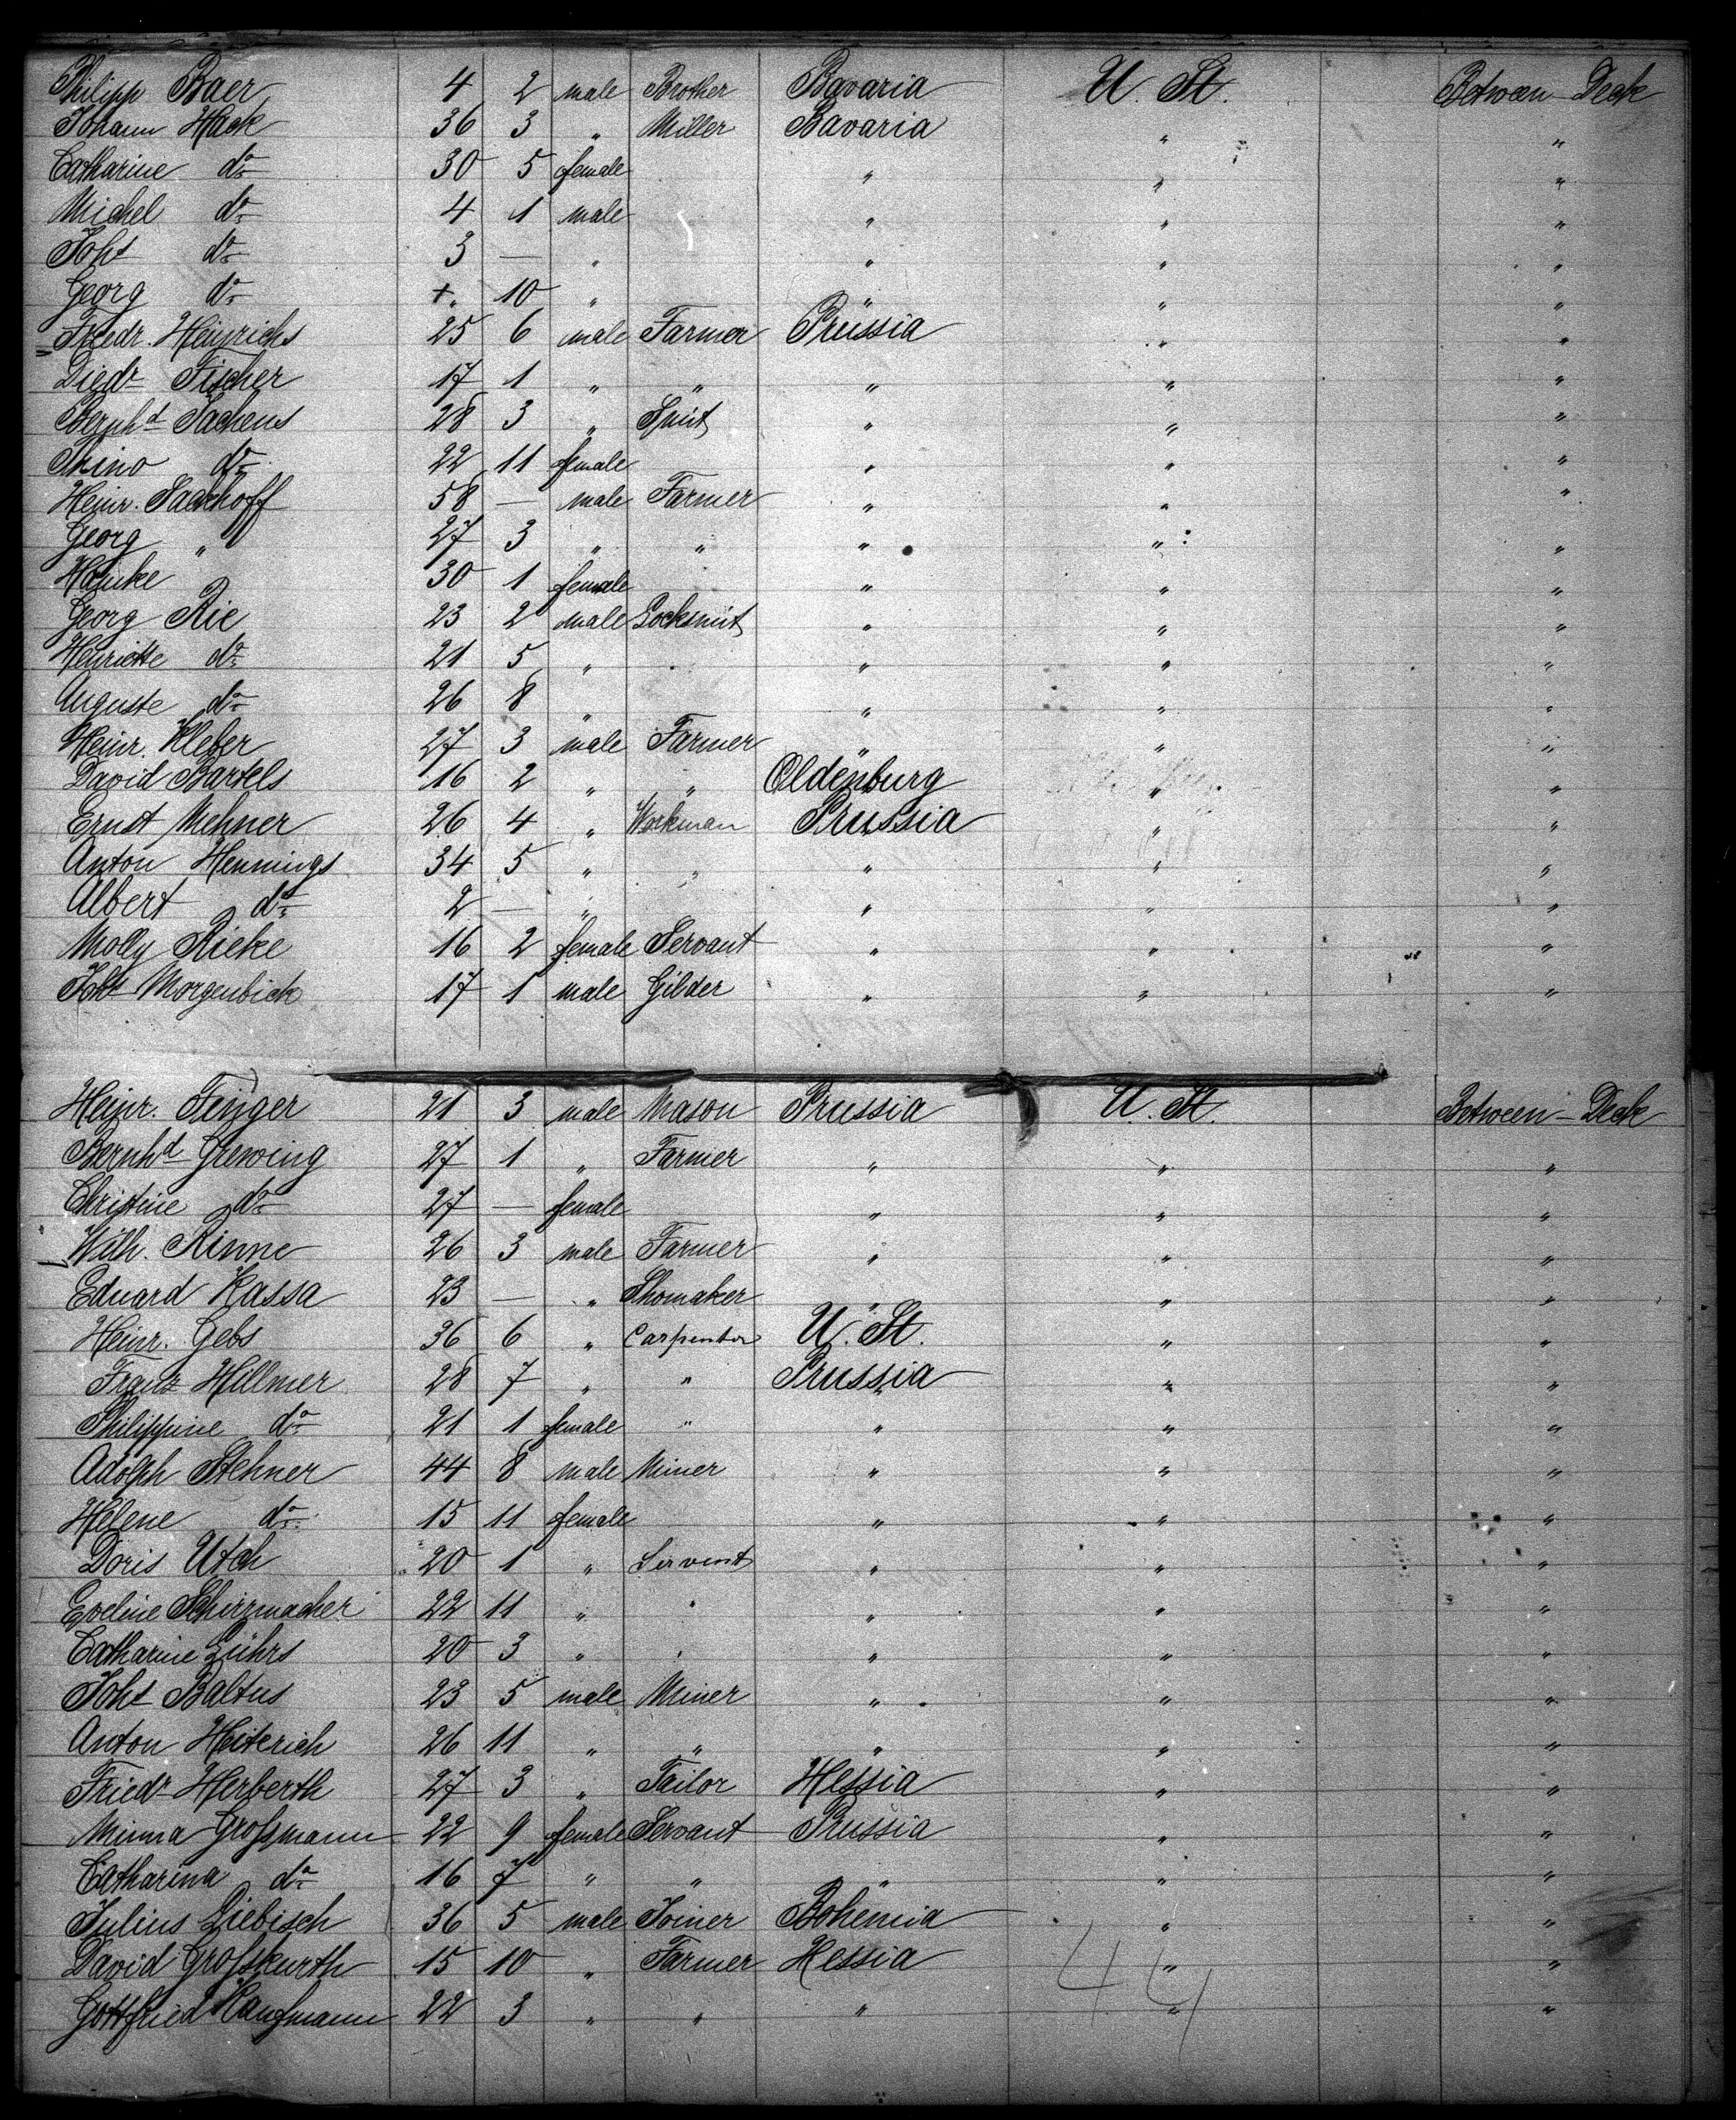 Philipp Baer 4 2 male Brother Bavaria U. St. Between-Deck
Johann Hack 36 3 " Miller Bavaria " "
Catharine do 30 5 female " " "
Michel do 4 1 male " " "
Joh. do 3 — " " " "
Georg do 10 " " " "
Friedr. Heinrichs 25 6 male Farmer Prussia " "
Diedr Fischer 17 1 " " " " "
Bernhd Sachens 28 3 " Smit " " "
Trino do 22 11 female " " "
Heinr. Sackhoff 58 — male Farmer " " "
Georg " 27 3 " " " " "
Hauke 30 1 female " " "
Georg Rie 23 2 male Locksmit " " "
Henriette do 21 5 " " " "
Auguste do 26 8 " " " "
Heinr. Kleber 27 3 male Farmer " " "
David Bartels 16 2 " " Oldenburg " "
Ernst Mehner 26 4 " Workman Prussia " "
Anton Hennings 34 5 " " " " "
Albert do 2 — " " " "
Molly Rieke 16 2 female Servant " " "
Joh. Morgenbick 17 1 male Gilder " " "
Heinr. Finger 21 3 male Mason Prussia U. St. Between-Deck
Bernhd Grewing 27 1 " Farmer " " "
Christine do 27 — female " " "
Wilh. Rinne 26 3 male Farmer " " "
Eduard Kassa 23 — " Shomaker " " "
Heinr. Gebs 36 6 " Carpenter U. St. " "
Franz Hillmer 28 7 " " Prussia " "
Philippine do 21 1 female " " " "
Adolph Stehner 44 8 male Miner " " "
Helene do 15 11 female " " "
Doris Utch 20 1 " Servent " " "
Eveline Schirrmacher 22 11 " " " " "
Catharine Lührs 20 3 " " " " "
Joh. Baltus 23 5 male Miner " " "
Anton Heiterich 26 11 " " " " "
Friedr Herberth 27 3 " Tailor Hessia " "
Minna Großmann 22 9 female Servant Prussia " "
Catharina do 16 7 " " " " "
Julius Liebisch 36 5 male Joiner Bohemia " "
David Großkurth 15 10 " Farmer Hessia " "
Gottfried Kaufmann 22 3 " " " " "
44